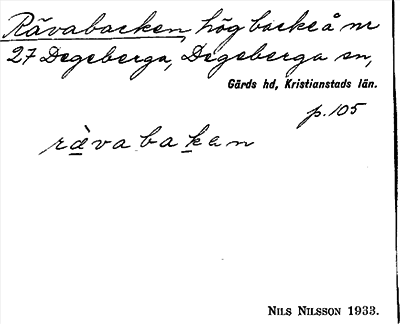 Rävabacken, hög backe å nr
27 Degeberga, Degeberga sn,
Gärds hd, Kristianstads län.
p. 105
ràvabakan
NILS NILSSON 1933.